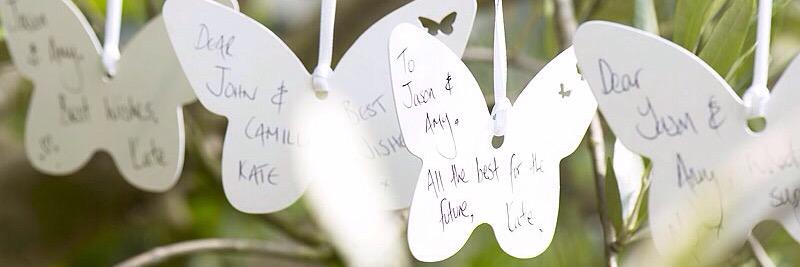 Jason
& Amy.
Best Wishes,
Kate
DEAR
JOHN &
CAMILL
KATE
BEST
WISHE
x
To
Jason &
Amy.
All the best for the
future,
Kate.
Dear
Jason &
Amy